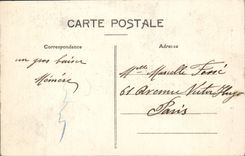 CARTE POSTALE
Correspondance
Adresse
un gros baiser
Mémère
Mlle Marcelle Fossé
61 Avenue Victor Hugo
Paris